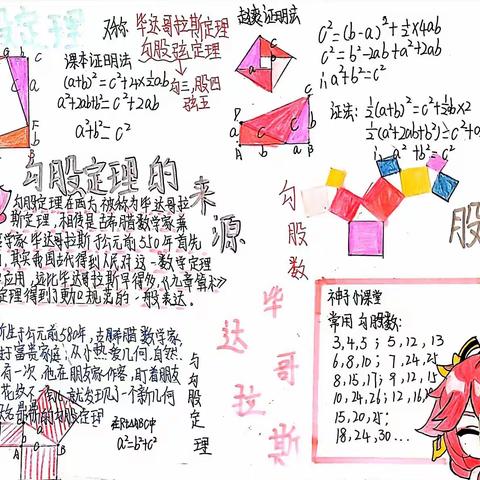 股定理
又称 毕达哥拉斯定理
勾股弦定理
勾三,股四
弦五
课本证明法
(a+b)²=c²+4×½ab
a²+2ab+b²=c²+2ab
a²+b²=c²
赵爽证明法
c²=(b-a)²+½×4ab
c²=b²-2ab+a²+2ab
∴a²+b²=c²
证法: ½(a+b)²=c²+½ab×2
½(a²+2ab+b²)=c²+
∴a²+b²=c²
勾股定理的来源
勾股定理在西方被称为毕达哥拉
斯定理,相传是古希腊数学家兼
学家毕达哥拉斯于公元前550年首先
其实我国古代得到人民对这一数学定理
应用,远比毕达哥拉斯早得多,《九章算术》
定理得到了更加规范的一般表达。
生于公元前580年,古希腊数学家
富贵家庭;从小热爱几何,自然
有一次,他在朋友家作客,盯着朋友
就发现了一个新几何
勾股定理
在Rt△ABC中
a²=b²+c²
勾股定理
勾股数
股
毕达哥拉斯
神奇小课堂
常用勾股数:
3,4,5; 5,12,13
6,8,10; 7,24,25
8,15,17; 9,12,15
10,24,26; 12,16
15,20,25;
18,24,30...